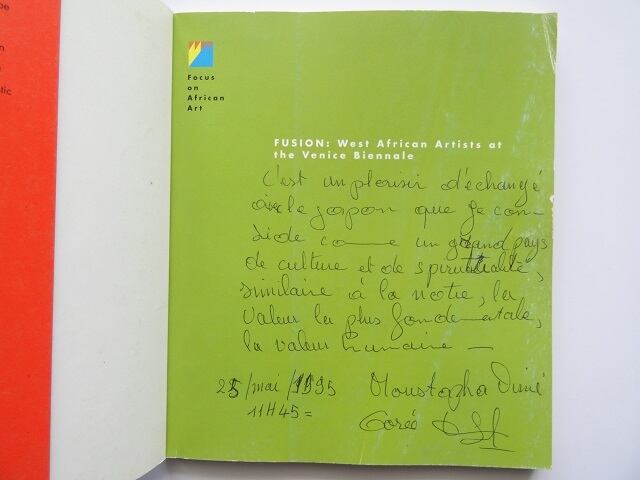 Focus
on
African
Art
FUSION: West African Artists at
the Venice Biennale
C'est un plaisir d'échangé
avec le japon que je con-
sidè comme un grand pays
de culture et de spiritualité,
similaire à la notre, la
valeur la plus fondamentale,
la valeur humaine —
25/mai/1995 Moustapha Dimé
11H45= Gorée